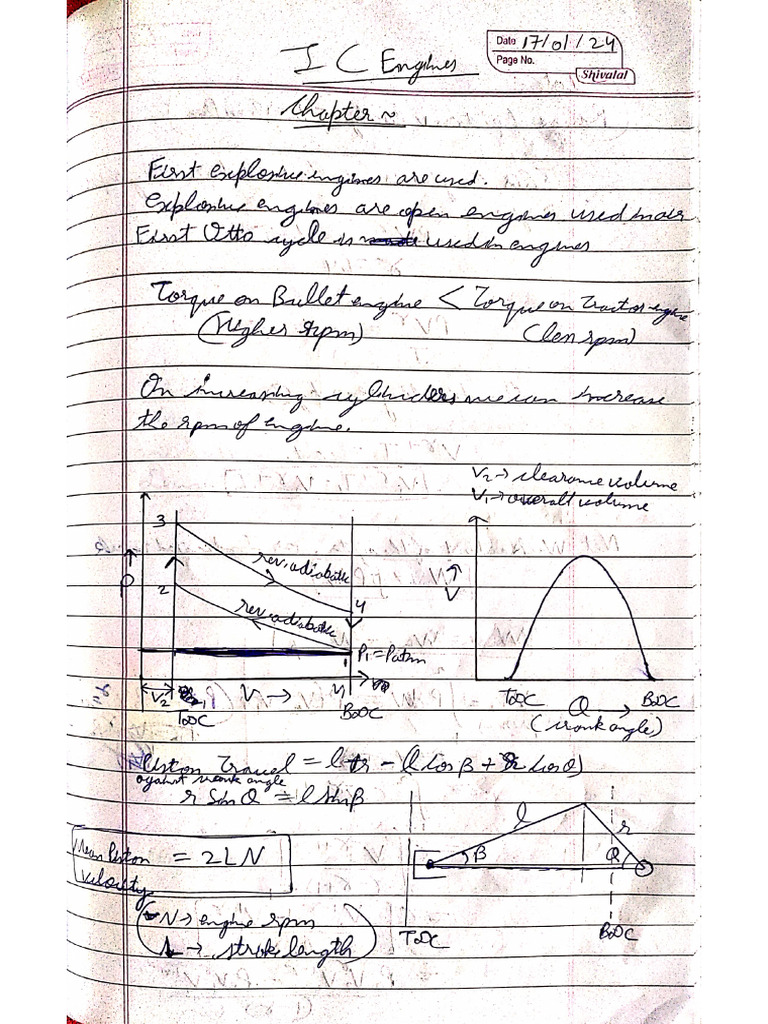 Date 17/01/24
Page No.
Shivalal
I C Engines
Chapter ~
First explosive engines are used.
explosive engines are open engines used in air
First Otto cycle is used in engines
Torque on Bullet engine < Torque on Tractor engine
(Higher rpm) (less rpm)
On increasing cylinders we can increase
the rpm of engine.
V2 → clearance volume
V1 → overall volume
3
rev. adiabatic
P →
2
4
rev. adiabatic
V →
P1 = Patm
1
V2
V →
V1
TDC
BDC
TDC
θ →
BDC
(crank angle)
Piston Travel = l + r - (l cos β + r cos θ)
against crank angle
r sin θ = l sin β
l
r
β
θ
Mean Piston = 2LN
velocity
N → engine rpm
L → stroke length
TDC
BDC